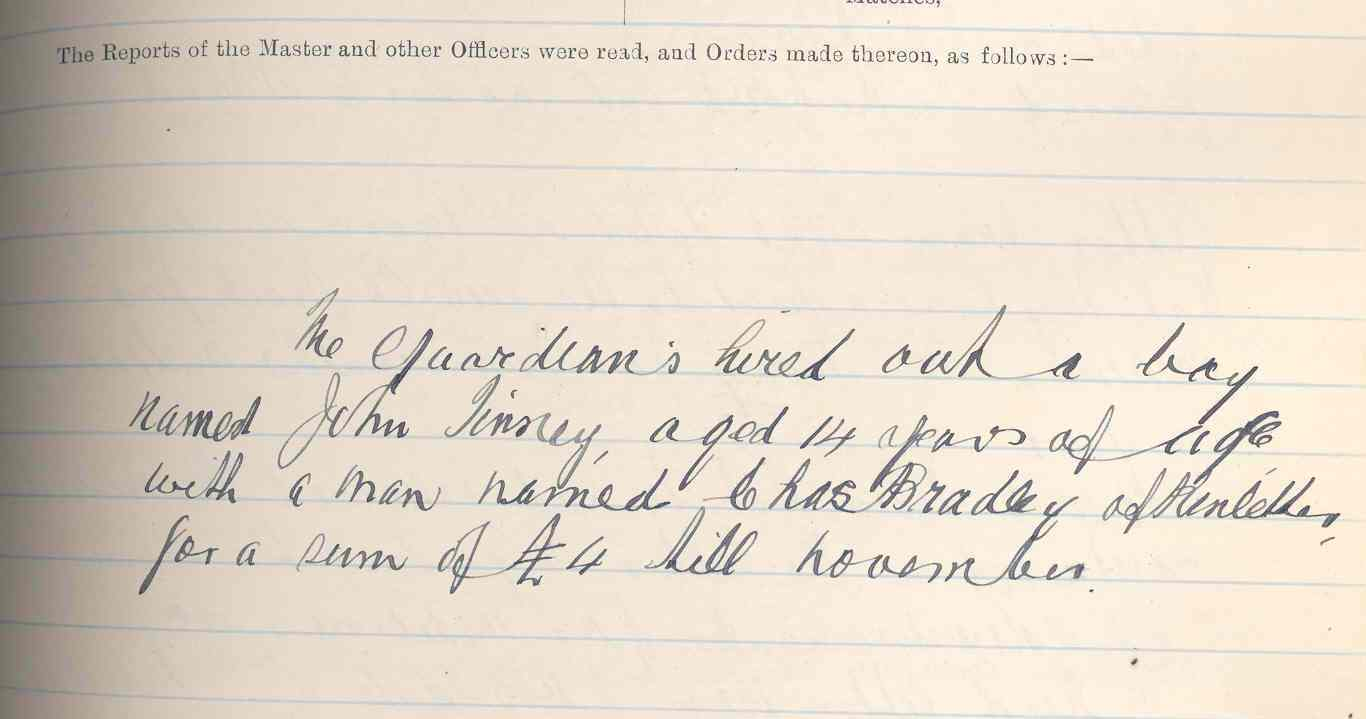 Matches,
The Reports of the Master and other Officers were read, and Orders made thereon, as follows :—
The Guardian's hired out a boy
named John Tinney, aged 14 years of age
with a man named Chas Bradley of
for a sum of £4 till november.